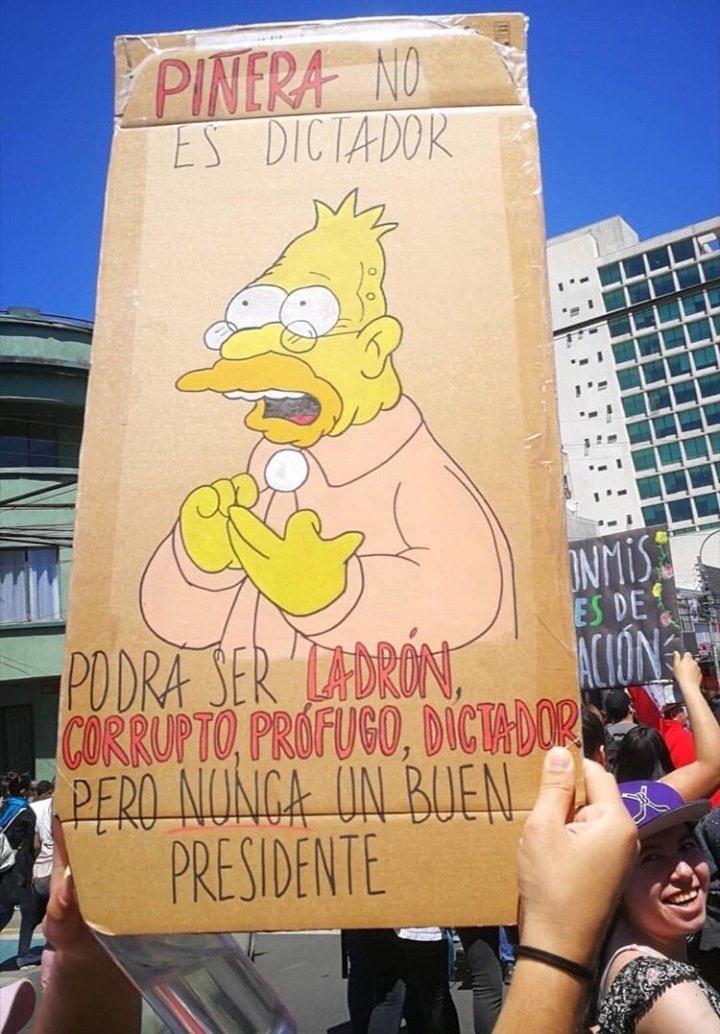 PIÑERA NO
ES DICTADOR
PODRÁ SER LADRÓN,
CORRUPTO, PRÓFUGO, DICTADOR
PERO NUNCA UN BUEN
PRESIDENTE
ES DE